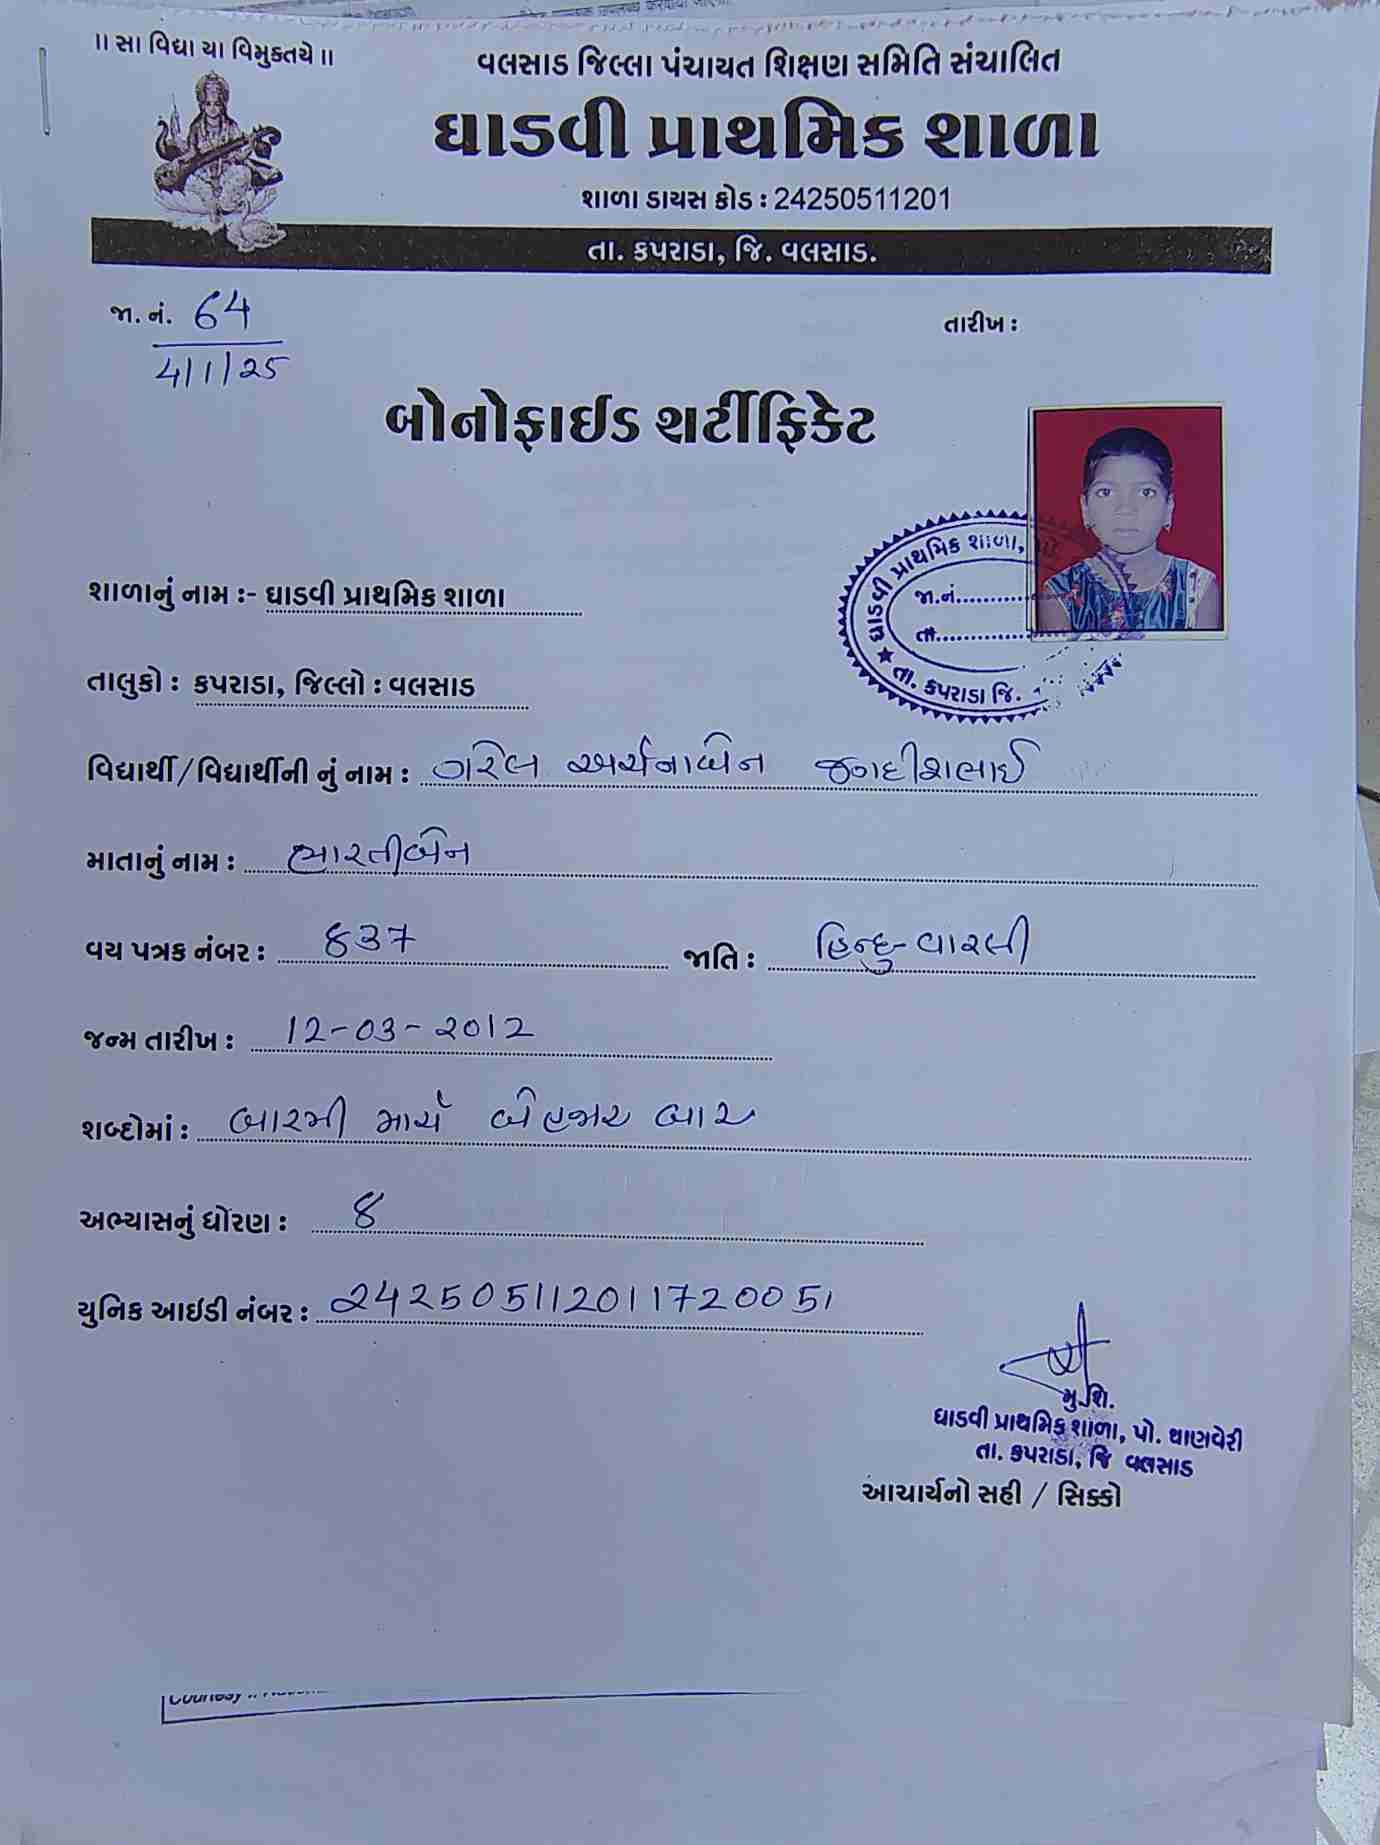 ॥ સા વિદ્યા યા વિમુક્તયે ॥
વલસાડ જિલ્લા પંચાયત શિક્ષણ સમિતિ સંચાલિત
ઘાડવી પ્રાથમિક શાળા
શાળા ડાયસ કોડ : 24250511201
તા. કપરાડા, જિ. વલસાડ.
જા. નં. 64
4/1/25
તારીખ :
બોનોફાઈડ સર્ટીફિકેટ
ઘાડવી પ્રાથમિક શાળા,
જા.નં.
તા.
તા. કપરાડા જિ.
શાળાનું નામ :- ઘાડવી પ્રાથમિક શાળા
તાલુકો : કપરાડા, જિલ્લો : વલસાડ
વિદ્યાર્થી/વિદ્યાર્થીની નું નામ : ગરેલ અર્ચનાબેન જગદીશભાઈ
માતાનું નામ : ભારતીબેન
વય પત્રક નંબર : 837 જાતિ : હિન્દુ-વારલી
જન્મ તારીખ : 12-03-2012
શબ્દોમાં : બારમી માર્ચ બેહજાર બાર
અભ્યાસનું ધોરણ : 8
યુનિક આઈડી નંબર : 242505112011720051
મુ.શિ.
ઘાડવી પ્રાથમિક શાળા, પો. થાણવેરી
તા. કપરાડા, જિ વલસાડ
આચાર્યનો સહી / સિક્કો